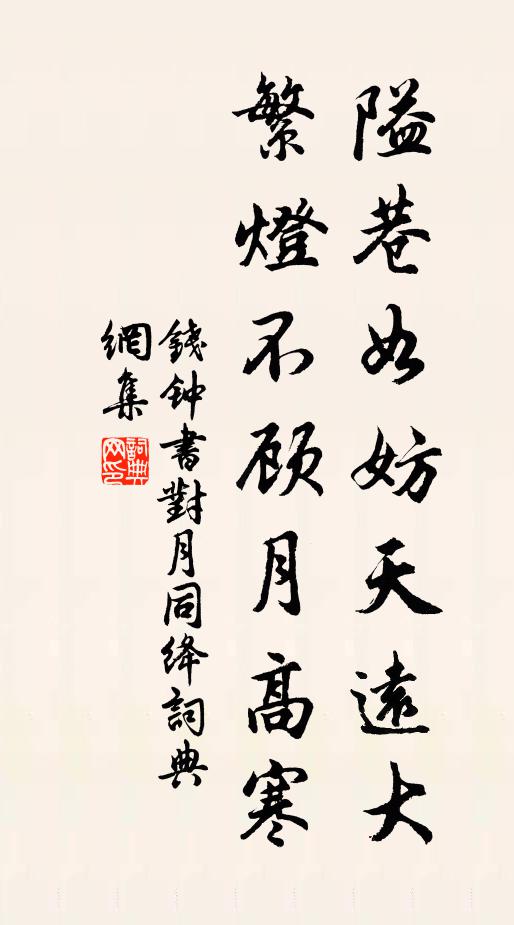 隘巷如妨天遠大
繁燈不顾月高寒
錢钟書對月同绛詞典
網集
詞典网印